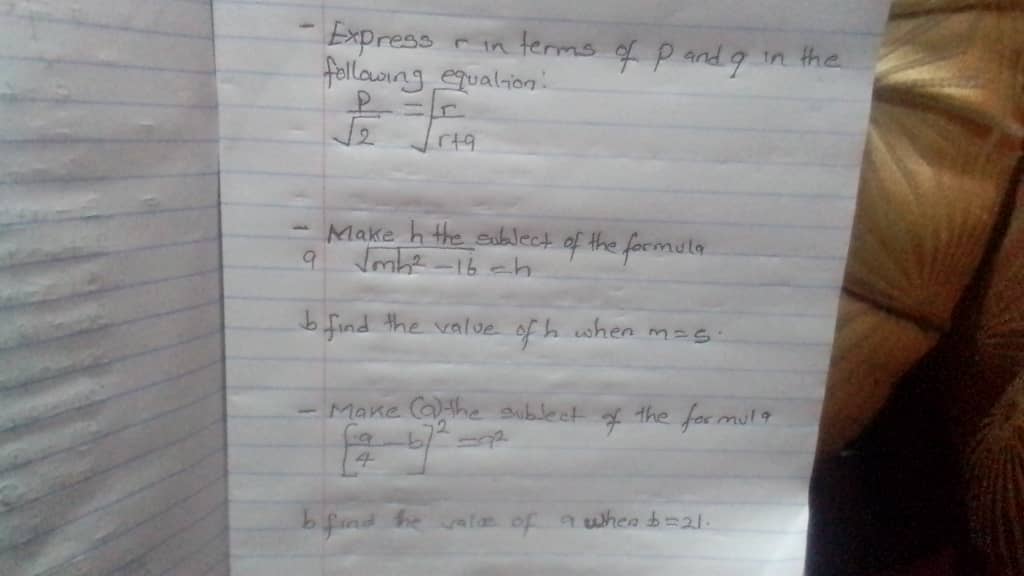 - Express r in terms of p and q in the
following equation:
P/√2 = √(r/(r+q))
- Make h the subject of the formula
a √mh² - 16 = h
b find the value of h when m=5.
- Make (a) the subject of the formula
[a/4 - b]² = a²
b find the value of a when b=21.